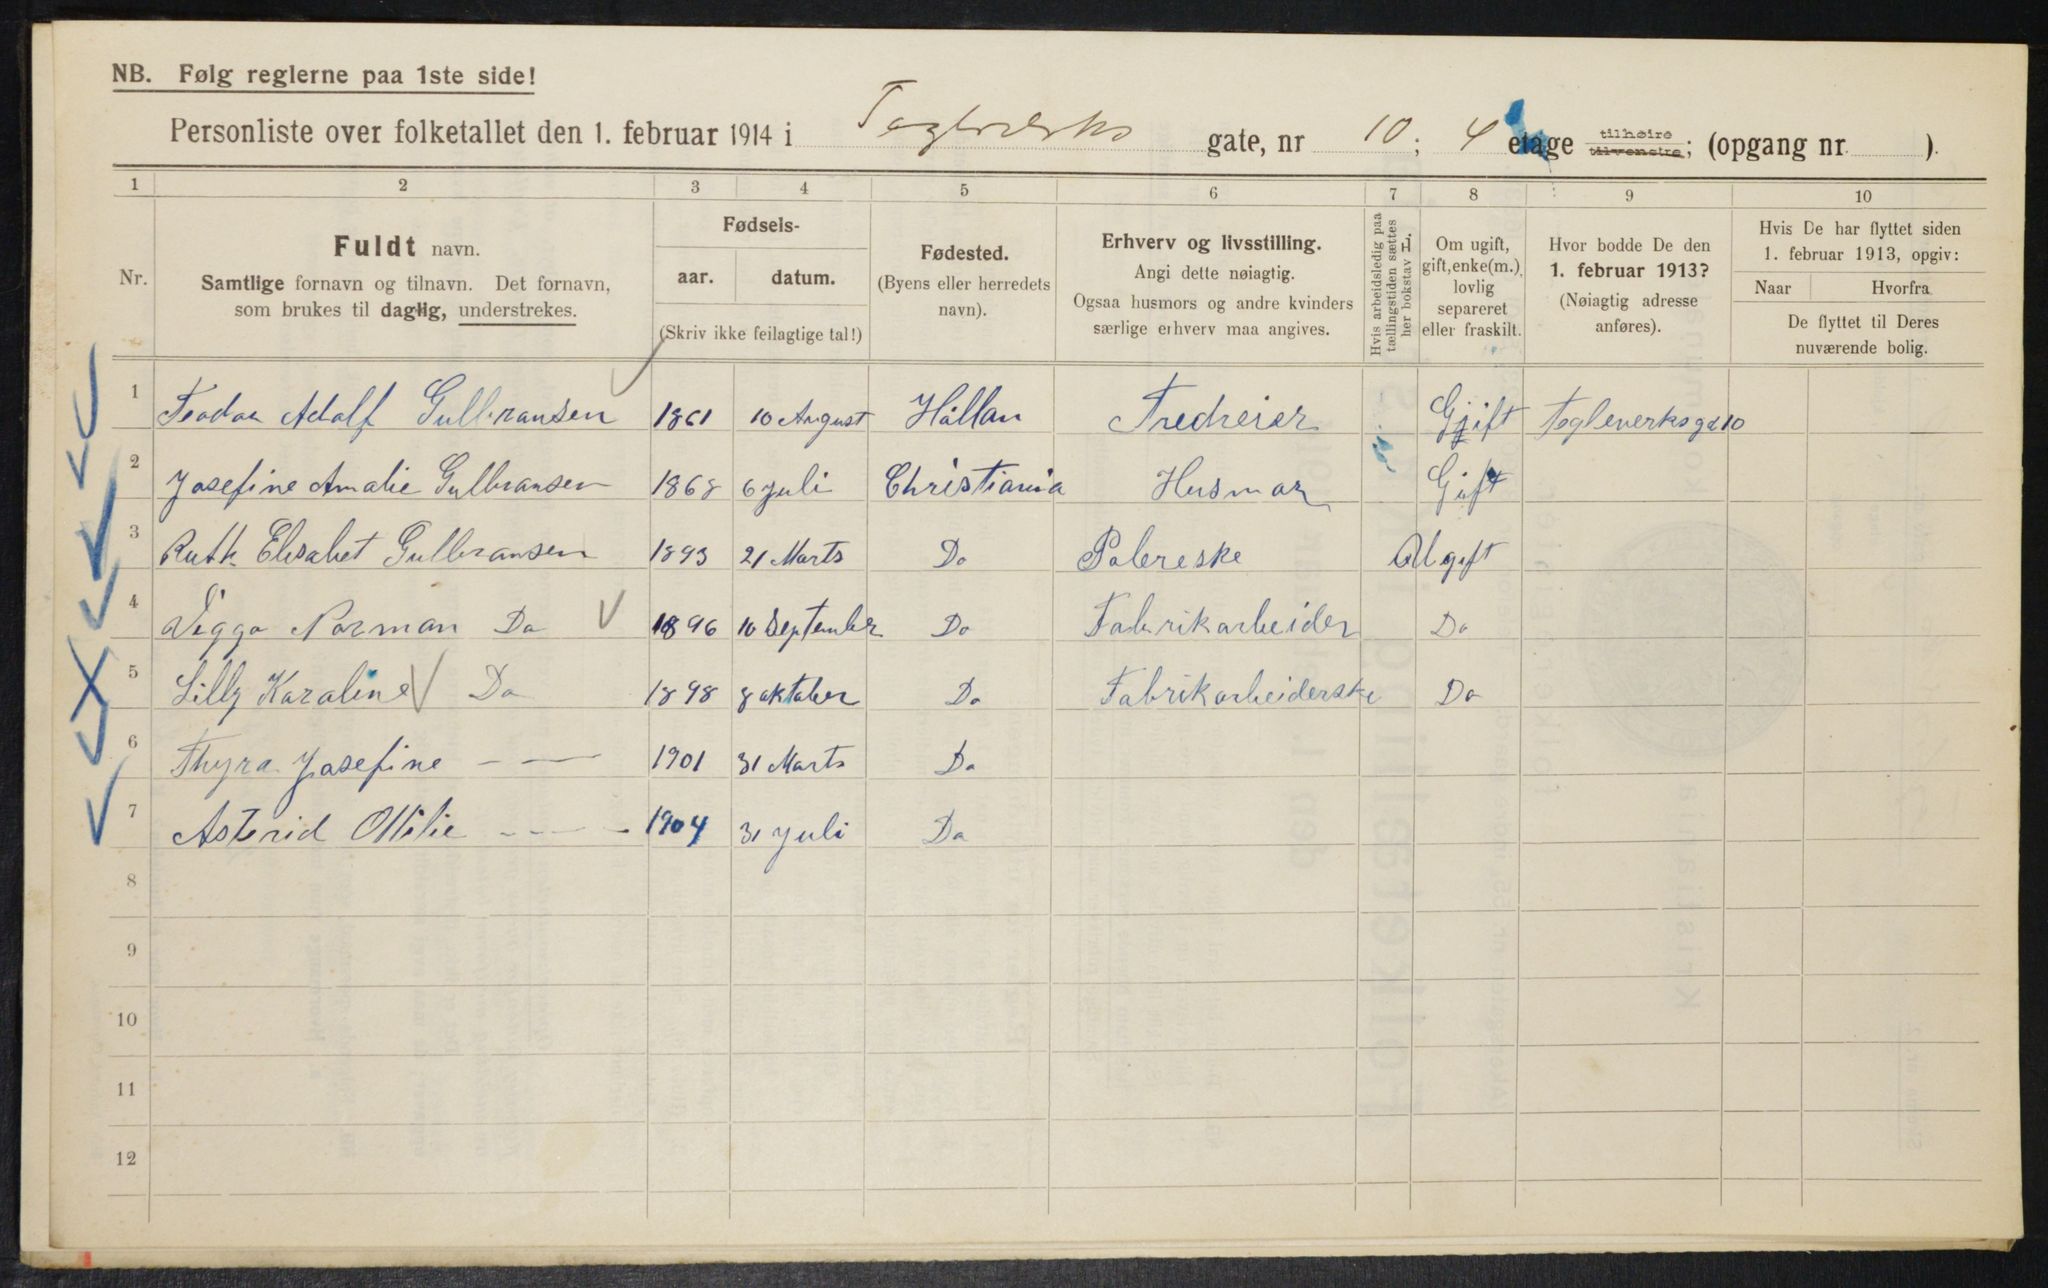 NB. Følg reglerne paa 1ste side!
Personliste over folketallet den 1. februar 1914 i Teglverks gate, nr 10; 4 etage tilhøire tilvenstre; (opgang nr. ).
1 2 3 4 5 6 7 8 9 10
Nr.
Fuldt navn.
Samtlige fornavn og tilnavn. Det fornavn,
som brukes til daglig, understrekes.
Fødsels-
aar. datum.
(Skriv ikke feilagtige tal!)
Fødested.
(Byens eller herredets
navn).
Erhverv og livsstilling.
Angi dette nøiagtig.
Ogsaa husmors og andre kvinders
særlige erhverv maa angives.
Hvis arbeidsledig paa
tællingstiden sættes
her bokstav L.
Om ugift,
gift, enke(m.),
lovlig
separeret
eller fraskilt.
Hvor bodde De den
1. februar 1913?
(Nøiagtig adresse
anføres).
Hvis De har flyttet siden
1. februar 1913, opgiv:
Naar Hvorfra
De flyttet til Deres
nuværende bolig.
1 Teodor Adolf Gulbransen 1861 10 August Hållan Tredreier Gift Teglverksgd 10
2 Josefine Amalie Gulbransen 1868 6 Juli Christiania Husmor Gift
3 Ruth Elisabet Gulbransen 1893 21 Marts Do Polereske Ugift
4 Viggo Norman Do 1896 10 September Do Fabrikarbeider Do
5 Lilly Karoline Do 1898 8 oktober Do Fabrikarbeiderske Do
6 Thyra Josefine - — 1901 31 Marts Do
7 Asterid Ottilie - - - - 1904 31 Juli Do
8
9
10
11
12